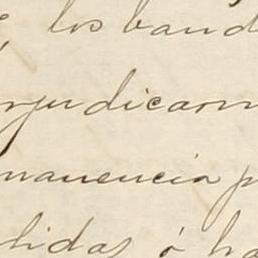 los band
rjudicarn
manencia p
lidas ó ha